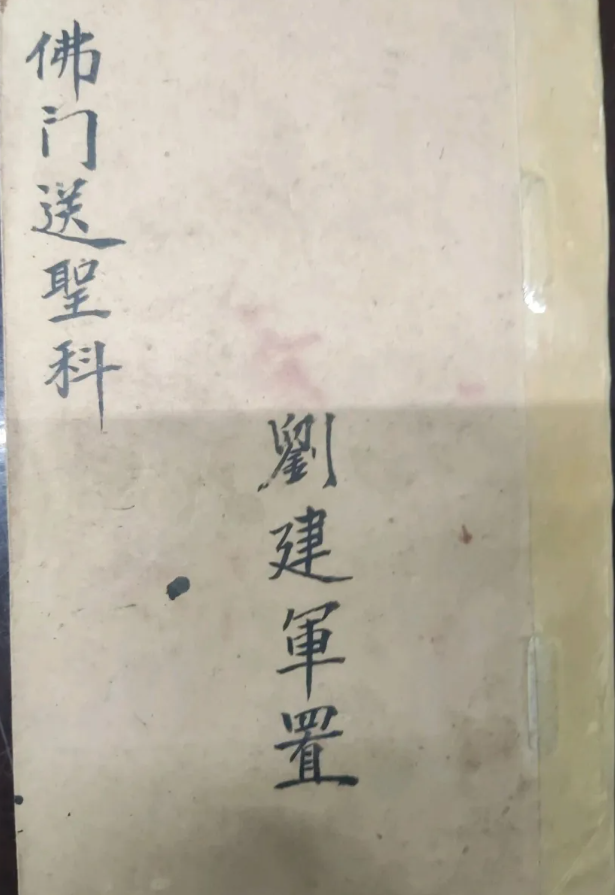 佛门送聖科
劉建軍置